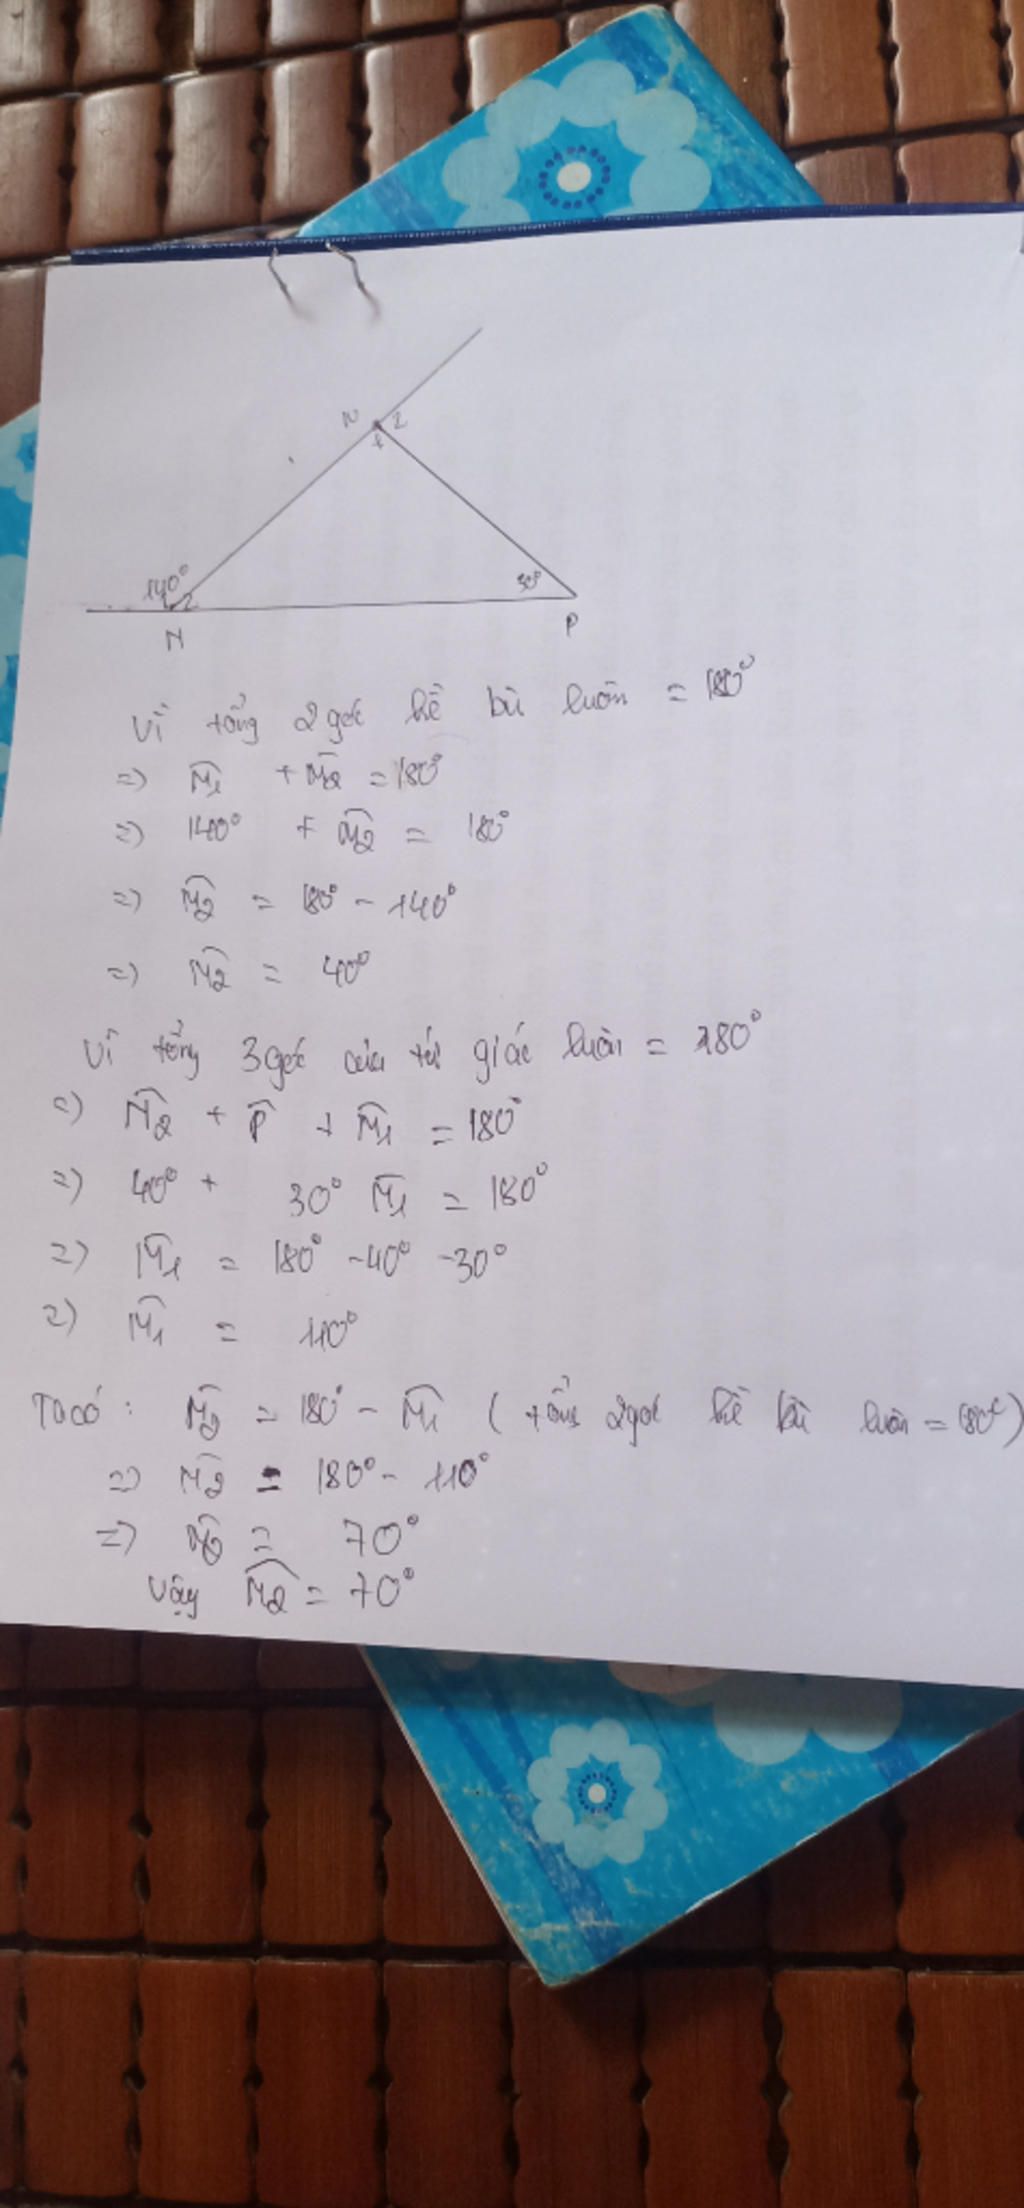 N 2
1
140°
2
30°
N
P
Vì tổng 2 góc kề bù luôn = 180°
=> M̂1 + M̂2 = 180°
=> 140° + M̂2 = 180°
=> M̂2 = 180° - 140°
=> M̂2 = 40°
Vì tổng 3 góc của tứ giác luôn = 180°
=> N̂2 + P̂ + M̂1 = 180°
=> 40° + 30° M̂1 = 180°
=> M̂1 = 180° - 40° - 30°
=> M̂1 = 110°
Ta có : M̂2 = 180° - M̂1 ( tổng 2 góc kề bù luôn = 180°)
=> M̂2 = 180° - 110°
=> M̂2 = 70°
Vậy M̂2 = 70°